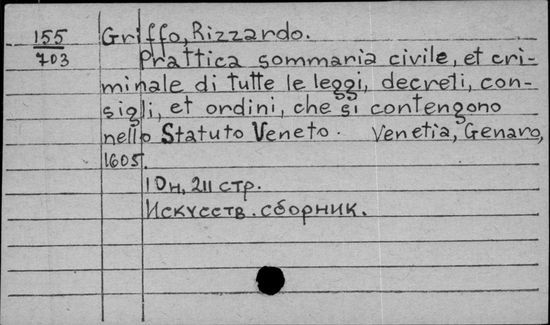 155
703
Griffo, Rizzardo.
Prattica sommaria civile, et cri-
minale di tutte le leggi, decreti, con-
sigli, et ordini, che si contengono
nello Statuto Veneto. Venetia, Genaro,
1605.
10н, 211 стр.
Искусств. сборник.